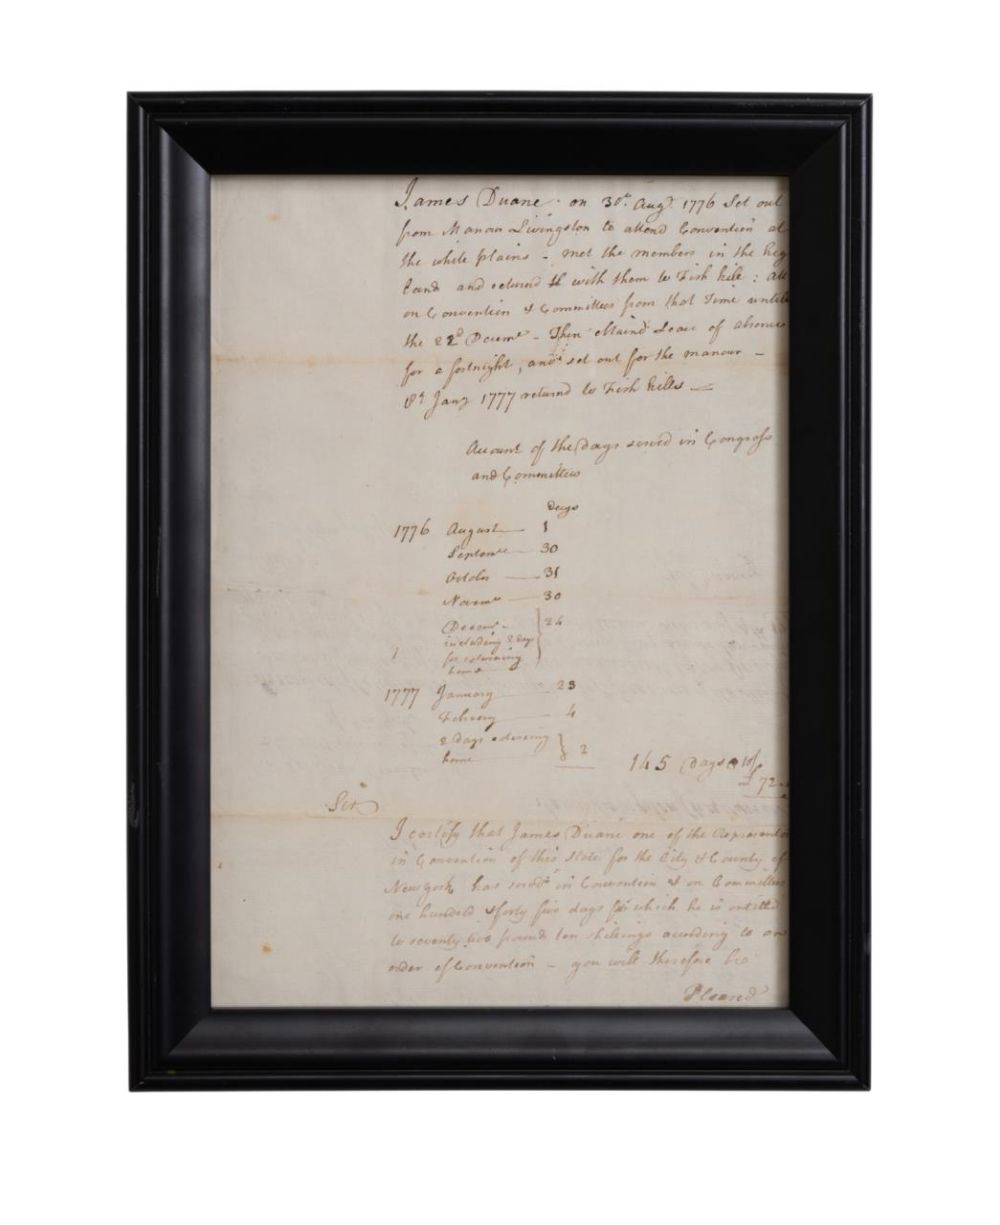 James Duane on 30th. Augt. 1776 Set out
from Manor Livingston to attend Convention at
the white plains - met the members in the hig
land and returnd with them to Fish kill: all
on Convention & Committees from that Time until
the 22d Decemr - Then obtaind Leave of absence
for a fortnight, and set out for the manour -
8th Jany 1777 returnd to Fish kills
Account of the Days served in Congress
and Committees
Days
1776 August 1
Septemr 30
October 31
Novemr 30
Decemr - 24
including 2 days
for returning
home
1777 January 23
Febuary 4
2 Days returning
home 2
145 Days @ 10/
£ 72..
Sir
I certify that James Duane one of the Represent
in Convention of this State for the City & County of
New york has servd in Convention & on Committees
one hundred & forty five days for which he is entitled
to seventy two pound ten shillings according to an
order of Convention - you will therefore be
Pleased